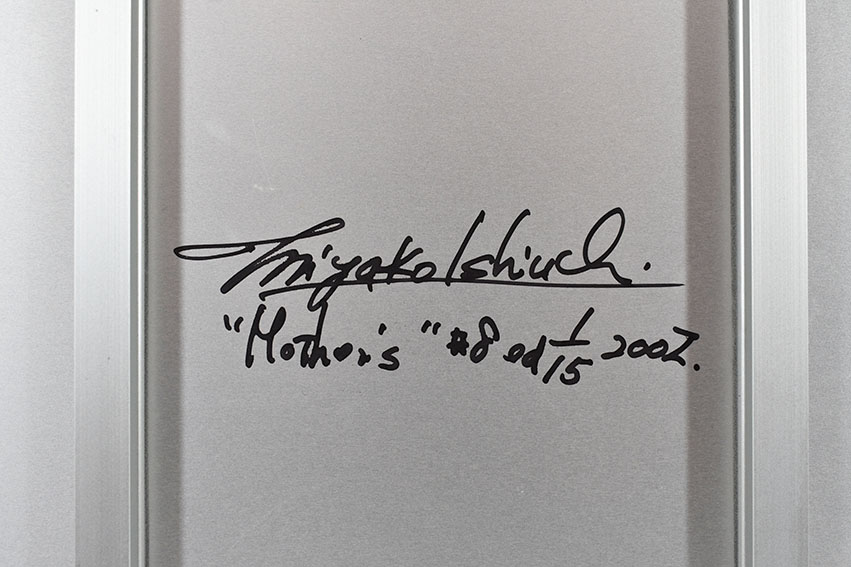 Miyako Ishiuchi.
"Mother's" #8 ed 1/15 2002.